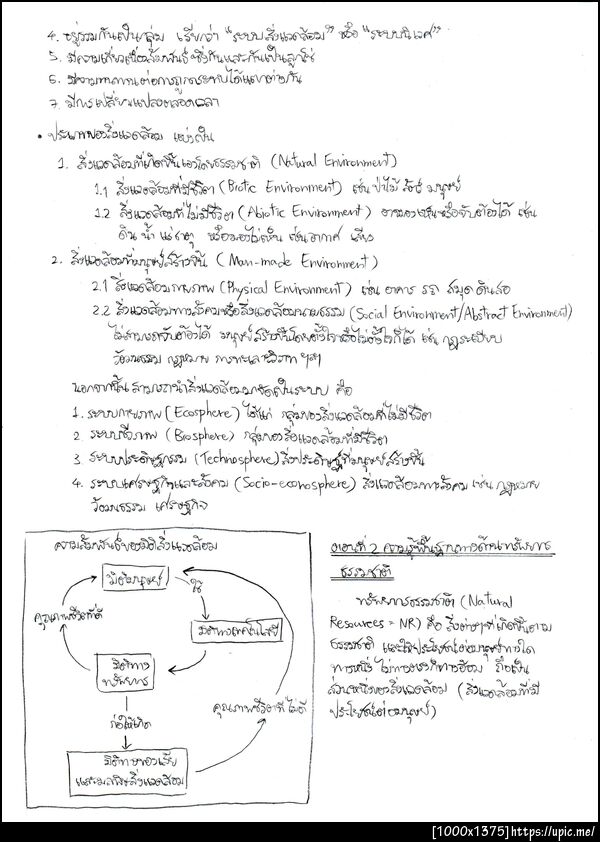 4. อยู่รวมกันเป็นกลุ่ม เรียกว่า "ระบบสิ่งแวดล้อม" หรือ "ระบบนิเวศ"
5. มีความเกี่ยวเนื่องสัมพันธ์ซึ่งกันและกันเป็นลูกโซ่
6. มีความทนทานต่อการถูกกระทบได้แตกต่างกัน
7. มีการเปลี่ยนแปลงตลอดเวลา
• ประเภทของสิ่งแวดล้อม แบ่งเป็น
1. สิ่งแวดล้อมที่เกิดขึ้นเองโดยธรรมชาติ (Natural Environment)
1.1 สิ่งแวดล้อมที่มีชีวิต (Biotic Environment) เช่น ป่าไม้ สัตว์ มนุษย์
1.2 สิ่งแวดล้อมที่ไม่มีชีวิต (Abiotic Environment) อาจมองเห็นหรือจับต้องได้ เช่น
ดิน น้ำ แร่ธาตุ หรือมองไม่เห็น เช่น อากาศ เสียง
2. สิ่งแวดล้อมที่มนุษย์สร้างขึ้น (Man-made Environment)
2.1 สิ่งแวดล้อมกายภาพ (Physical Environment) เช่น อาคาร รถ สมุด ดินสอ
2.2 สิ่งแวดล้อมทางสังคมหรือสิ่งแวดล้อมนามธรรม (Social Environment/Abstract Environment)
ไม่สามารถจับต้องได้ มนุษย์สร้างขึ้นโดยตั้งใจหรือไม่ตั้งใจก็ได้ เช่น กฎระเบียบ
วัฒนธรรม กฎหมาย ฯลฯ
นอกจากนั้น สามารถนำสิ่งแวดล้อมมาจัดเป็นระบบ คือ
1. ระบบกายภาพ (Ecosphere) ได้แก่ กลุ่มของสิ่งแวดล้อมที่ไม่มีชีวิต
2. ระบบชีวภาพ (Biosphere) กลุ่มของสิ่งแวดล้อมที่มีชีวิต
3. ระบบประดิษฐกรรม (Technosphere) สิ่งประดิษฐ์ที่มนุษย์สร้างขึ้น
4. ระบบเศรษฐกิจและสังคม (Socio-econosphere) สิ่งแวดล้อมทางสังคม เช่น กฎหมาย
วัฒนธรรม เศรษฐกิจ
ความสัมพันธ์ของมิติสิ่งแวดล้อม
มิติมนุษย์
ใช้
คุณภาพชีวิตที่ดี
มิติทางเทคโนโลยี
มิติทาง
ทรัพยากร
คุณภาพชีวิตที่ไม่ดี
ก่อให้เกิด
มิติทางของเสีย
และมลพิษสิ่งแวดล้อม
ตอนที่ 2 ความรู้พื้นฐานทางด้านทรัพยากร
ธรรมชาติ
ทรัพยากรธรรมชาติ (Natural
Resources = NR) คือ สิ่งต่างๆที่เกิดขึ้นตาม
ธรรมชาติ และให้ประโยชน์ต่อมนุษย์ทางใด
ทางหนึ่ง ไม่ทางตรงก็ทางอ้อม ถือเป็น
ส่วนหนึ่งของสิ่งแวดล้อม (สิ่งแวดล้อมที่มี
ประโยชน์ต่อมนุษย์)
[1000x1375]https://upic.me/